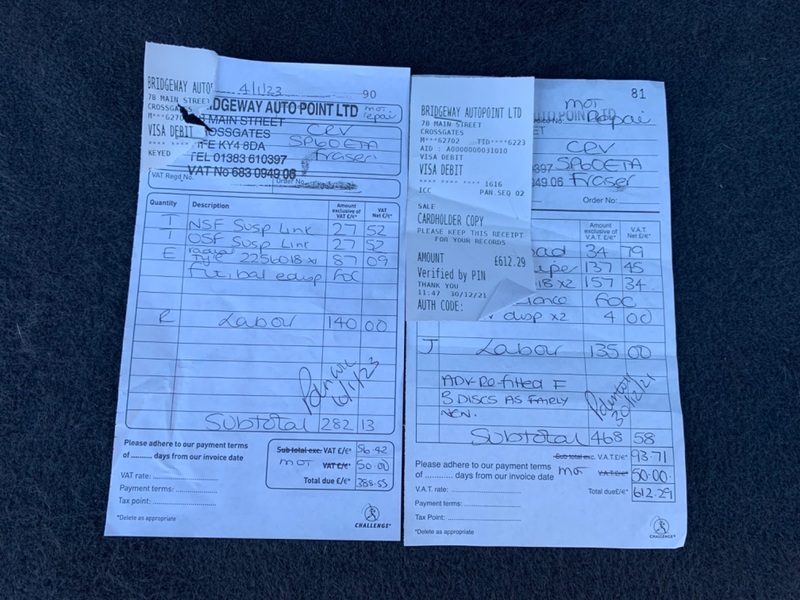 BRIDGEWAY AUTO
78 MAIN STREET
CROSSGATES
M***6270
VISA DEBIT
**** **** ****
KEYED
4/1/23
90
DGEWAY AUTO POINT LTD
MOT
repair
MAIN STREET
OSSGATES
FE KY4 8DA
TEL 01383 610397
VAT No 683 0949 06
CRV
SP60ETA
Fraser
VAT Regd No.
Order No.
Quantity Description Amount exclusive of VAT £/€* VAT Net £/€*
1 NSF Susp Link 27 52
1 OSF Susp Link 27 52
E 2256018 x1 87 09
FOC
R Labor 140 00
6/1/23
Subtotal 282 13
Please adhere to our payment terms
of .......... days from our invoice date
VAT rate:
Payment terms:
Tax point:
*Delete as appropriate
Sub total exc. VAT £/€* 56.42
MOT VAT £/€* 50.00
Total due £/€* 388.55
CHALLENGE
BRIDGEWAY AUTOPOINT LTD
78 MAIN STREET
CROSSGATES
M***62702 TID****6223
AID : A0000000031010
VISA DEBIT
VISA DEBIT
**** **** **** 1616
ICC PAN.SEQ 02
SALE
CARDHOLDER COPY
PLEASE KEEP THIS RECEIPT
FOR YOUR RECORDS
AMOUNT £612.29
Verified by PIN
THANK YOU
11:47 30/12/21
AUTH CODE:
81
MOT
Repair
POINT LTD
397
49 06
CRV
SP60ETA
Fraser
Order No.
Amount exclusive of V.A.T. £/€* V.A.T. Net £/€*
34 79
137 45
18 x2 157 34
FOC
disp x2 4 00
J Labor 135 00
ADV Re-fitted F
B DISCS AS FAIRLY
NEW.
30/12/21
Subtotal 468 58
Please adhere to our payment terms
of .......... days from our invoice date
V.A.T. rate:
Payment terms:
Tax Point:
*Delete as appropriate
Sub total exc. V.A.T. £/€* 93.71
MOT V.A.T. £/€* 50.00
Total due £/€* 612.29
CHALLENGE